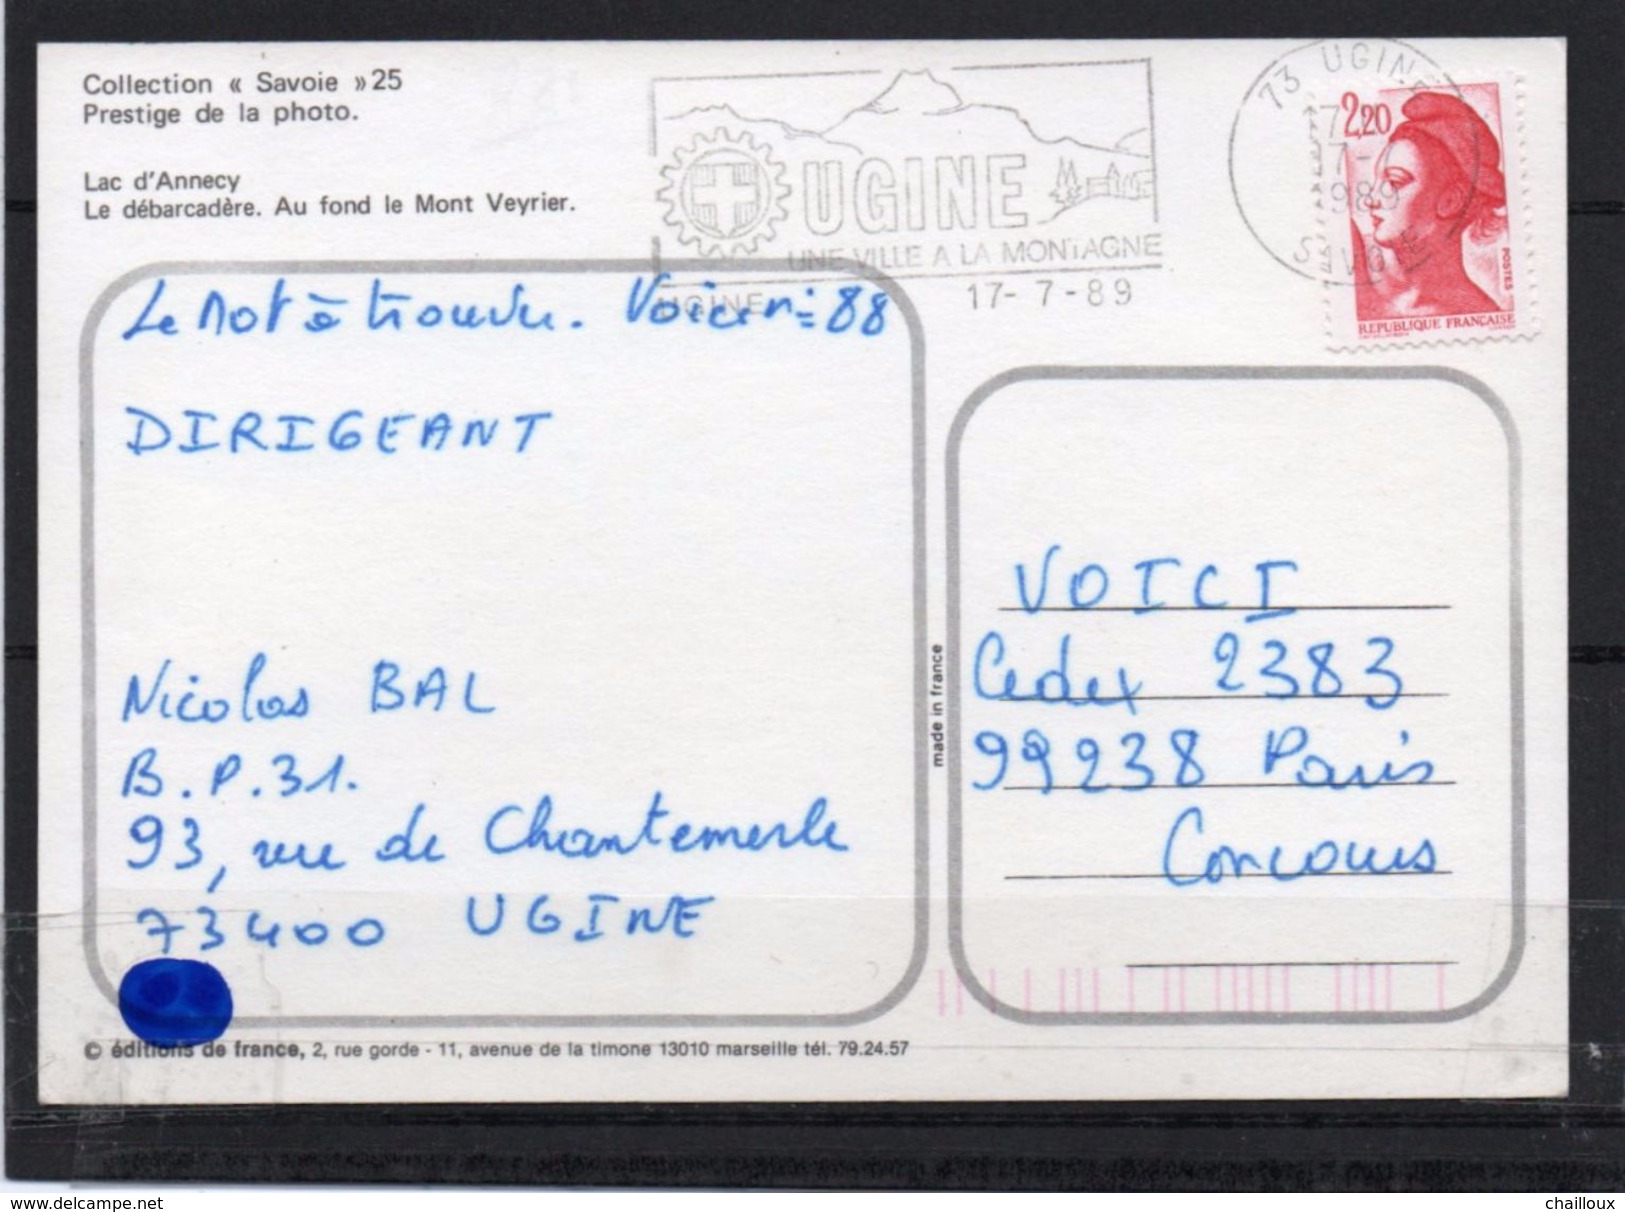 Collection « Savoie » 25
Prestige de la photo.
Lac d'Annecy
Le débarcadère. Au fond le Mont Veyrier.
UGINE
UNE VILLE A LA MONTAGNE
UGINE 17-7-89
73 UGINE
1989
SAVOIE
2,20
POSTES
REPUBLIQUE FRANÇAISE
Le Mot à trouver. Voici n= 88
DIRIGEANT
Nicolas BAL
B.P.31.
93, rue de Chantemerle
73400 UGINE
made in france
VOICI
Cedex 2383
99238 Paris
Concours
© éditions de france, 2, rue gorde - 11, avenue de la timone 13010 marseille tél. 79.24.57
2018 Mar 05 delcampe.net
chailloux